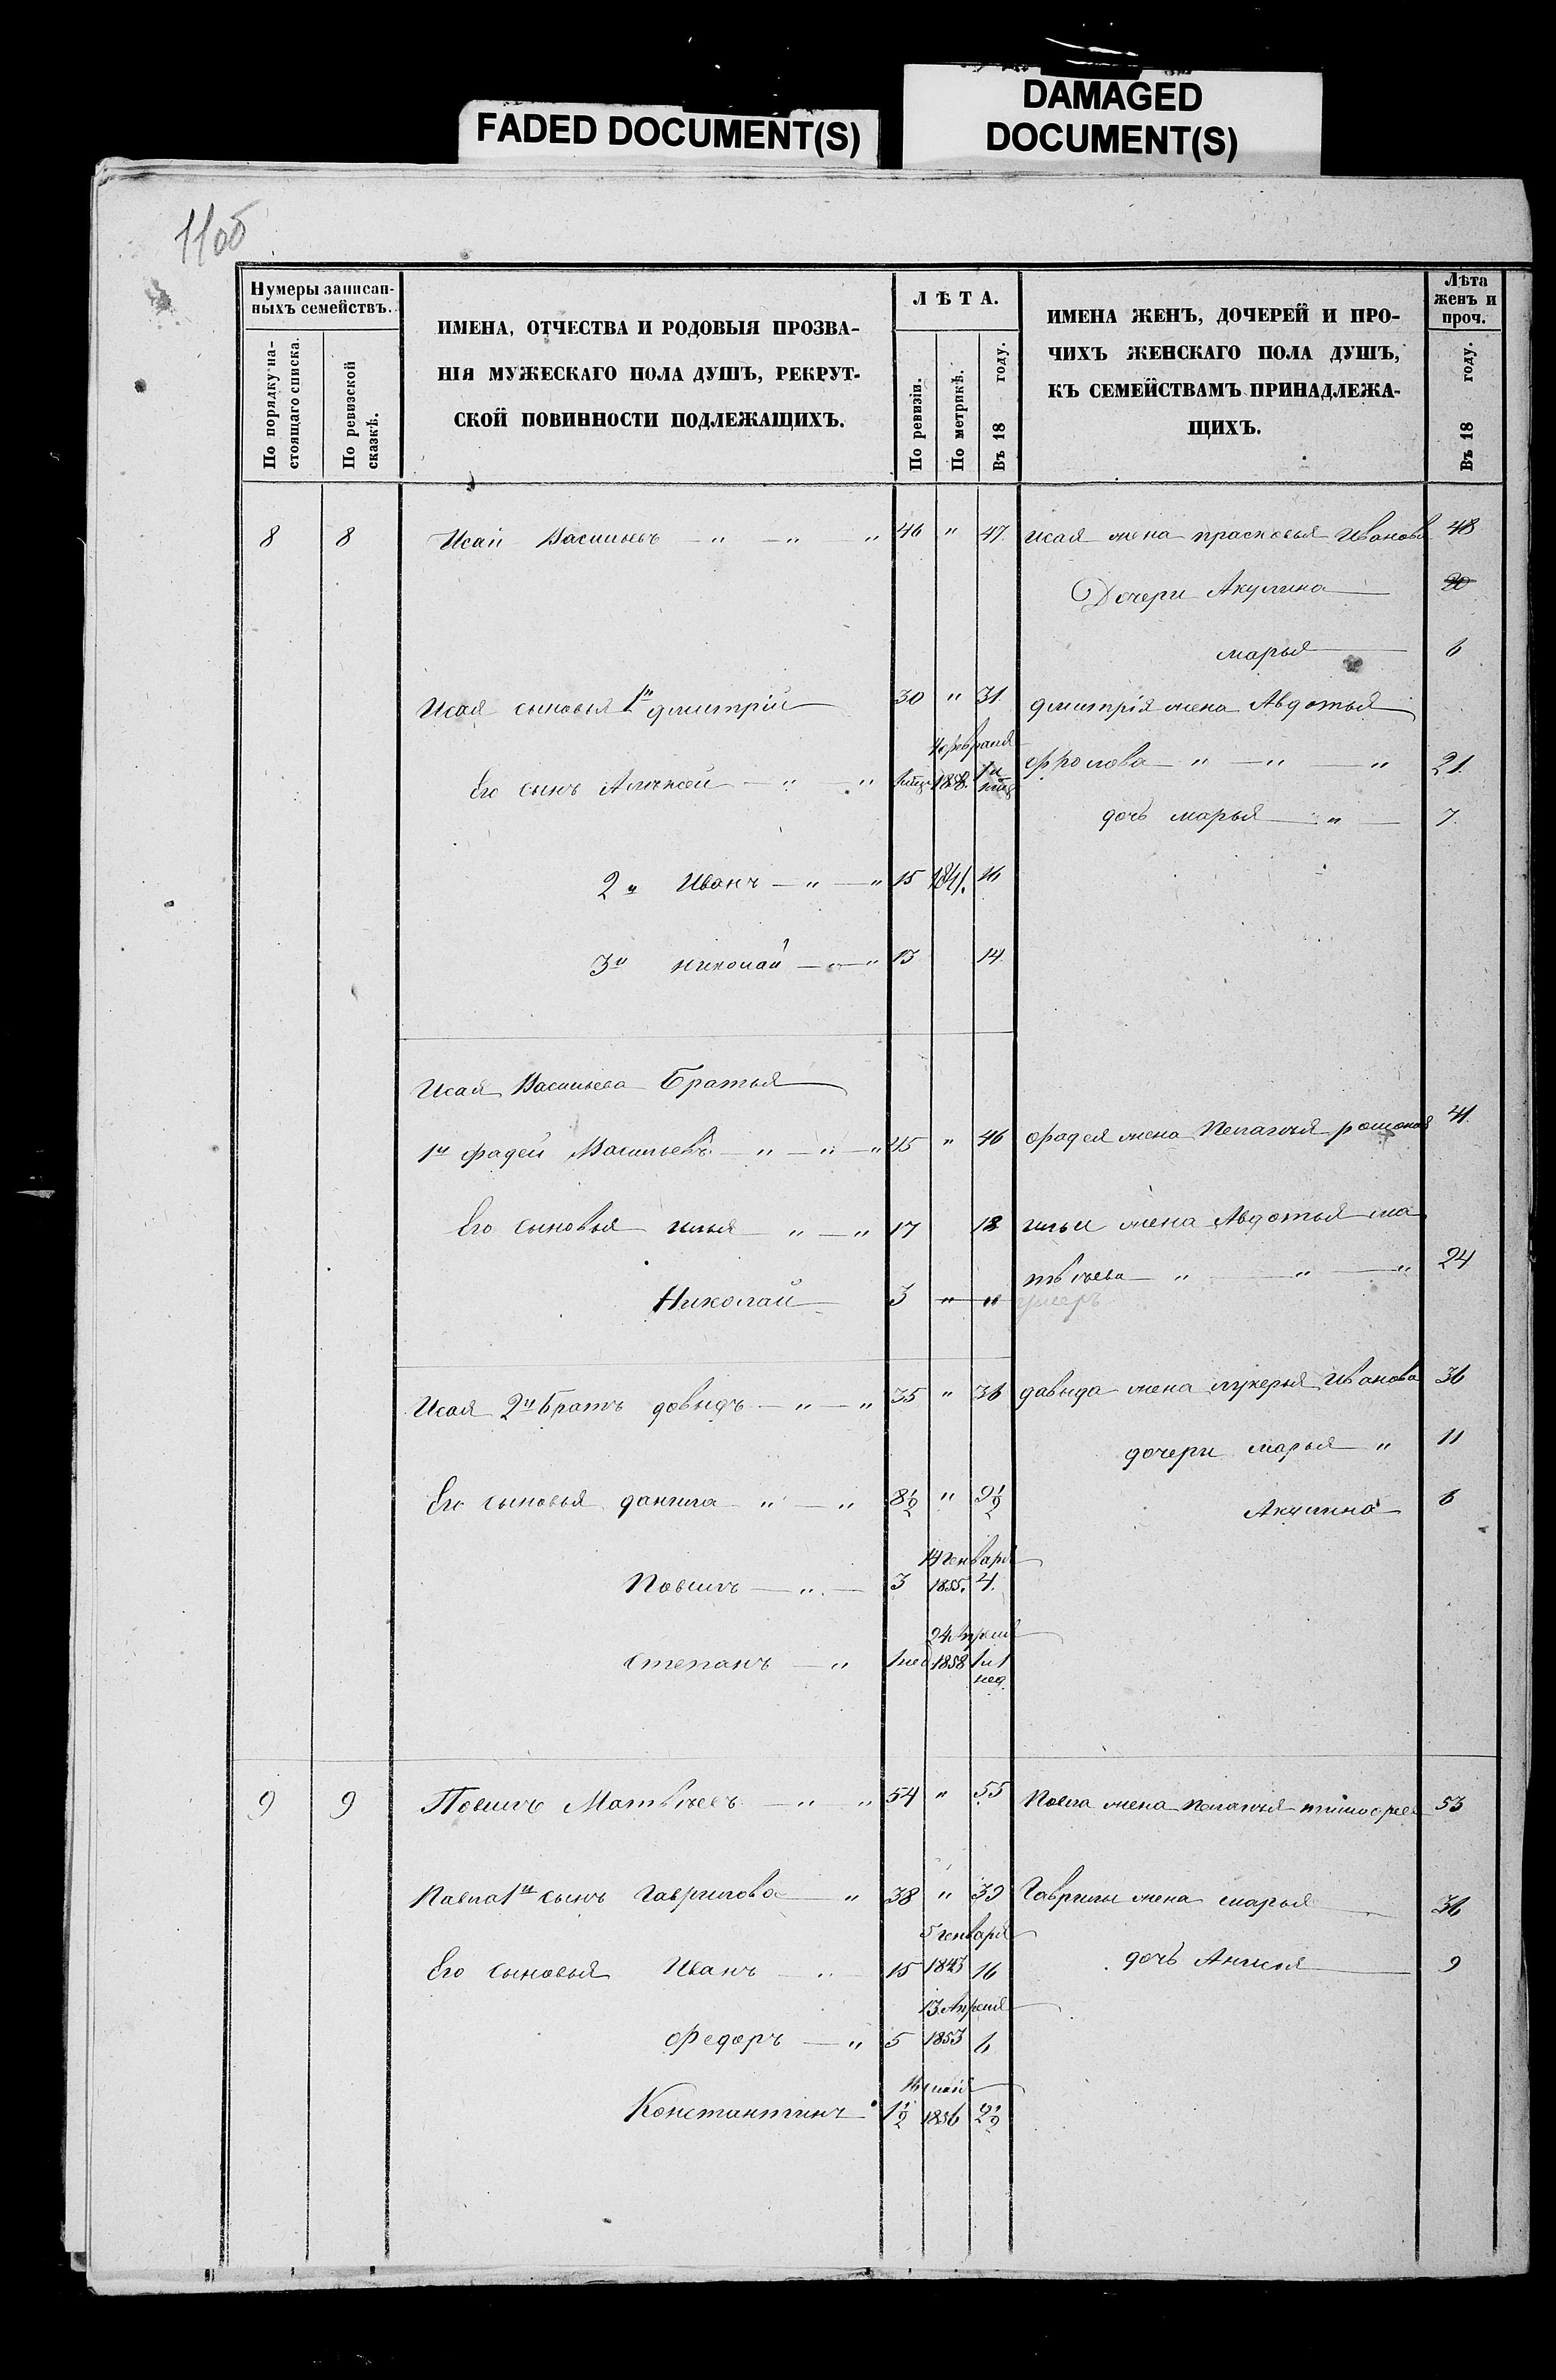 FADED DOCUMENT(S)
DAMAGED
DOCUMENT(S)
11об
Нумеры записан-
ныхъ семействъ.
По порядку на-
стоящаго списка.
По ревизской
сказкѣ.
ИМЕНА, ОТЧЕСТВА И РОДОВЫЯ ПРОЗВА-
НІЯ МУЖЕСКАГО ПОЛА ДУШЪ, РЕКРУТ-
СКОЙ ПОВИННОСТИ ПОДЛЕЖАЩИХЪ.
ЛѢТА.
По ревизіи.
По метрикѣ.
Въ 18 году.
ИМЕНА ЖЕНЪ, ДОЧЕРЕЙ И ПРО-
ЧИХЪ ЖЕНСКАГО ПОЛА ДУШЪ,
КЪ СЕМЕЙСТВАМЪ ПРИНАДЛЕЖА-
ЩИХЪ.
Лѣта
женъ и
проч.
Въ 18 году.
8 8 Исай Васильевъ — " — " — " 46 " 47. исая жена прасковья Иванова 48
Дочери Акулина — 20
марья — 6
Исая сыновья 1й дмитрій — 30 " 31. дмитрія жена Авдотья
февраля
Его сынъ Алексей — " — " 1858. фролова — " — " — " 21.
дочь марья — " — 7.
2й Иванъ — " — " 15 1841. 16
3й николай — " — " 13 14.
Исая Васильева Братья
1й фадей Васильевъ — " — " — " 45 " 46 фадея жена Пелагия романова 41.
Его сыновья илья — " — " 17 18 ильи жена Авдотья ма
твѣева — " — " — " 24
Николай — 3 " " умеръ
Исая 2й Братъ довыдъ — " — " 35 " 36 давыда жена лукерья Иванова 36
дочери марья — " 11
Его сыновья данила — " — " 8½ " 9½ Акулина — 6
14 генваря
Павилъ — " — 3 1855. 4.
24 Апреля
степанъ — " 1 нед 1858 1 и 1
нед.
9 9 Павилъ Матвѣевъ — " — " 54 " 55 Павла жена пелагия тимофеева 53
Павла 1й сынъ Гаврилова — " 38 " 39 Гаврилы жена марья — 36
5 генваря
Его сыновья Иванъ — " — 15 1843 16 дочь Анисья — 9
13 Апреля
Федоръ — " 5 1853 6
16 мая
Константинъ " 1½ 1856 2½